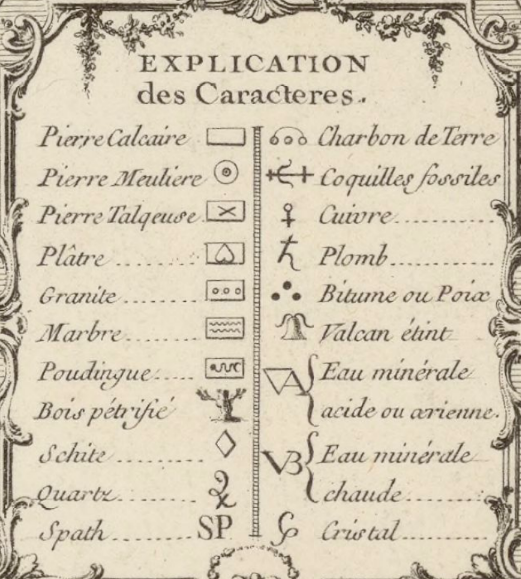 EXPLICATION
des Caracteres.
Pierre Calcaire
Pierre Meuliere
Pierre Talqeuse
Plâtre
Granite
Marbre
Poudingue
Bois pétrifié
Schite
Quartz
Spath SP
Charbon de Terre
Coquilles fossiles
Cuivre
Plomb
Bitume ou Poix
Valcan étint
Eau minérale
acide ou ærienne.
Eau minérale
chaude
Cristal